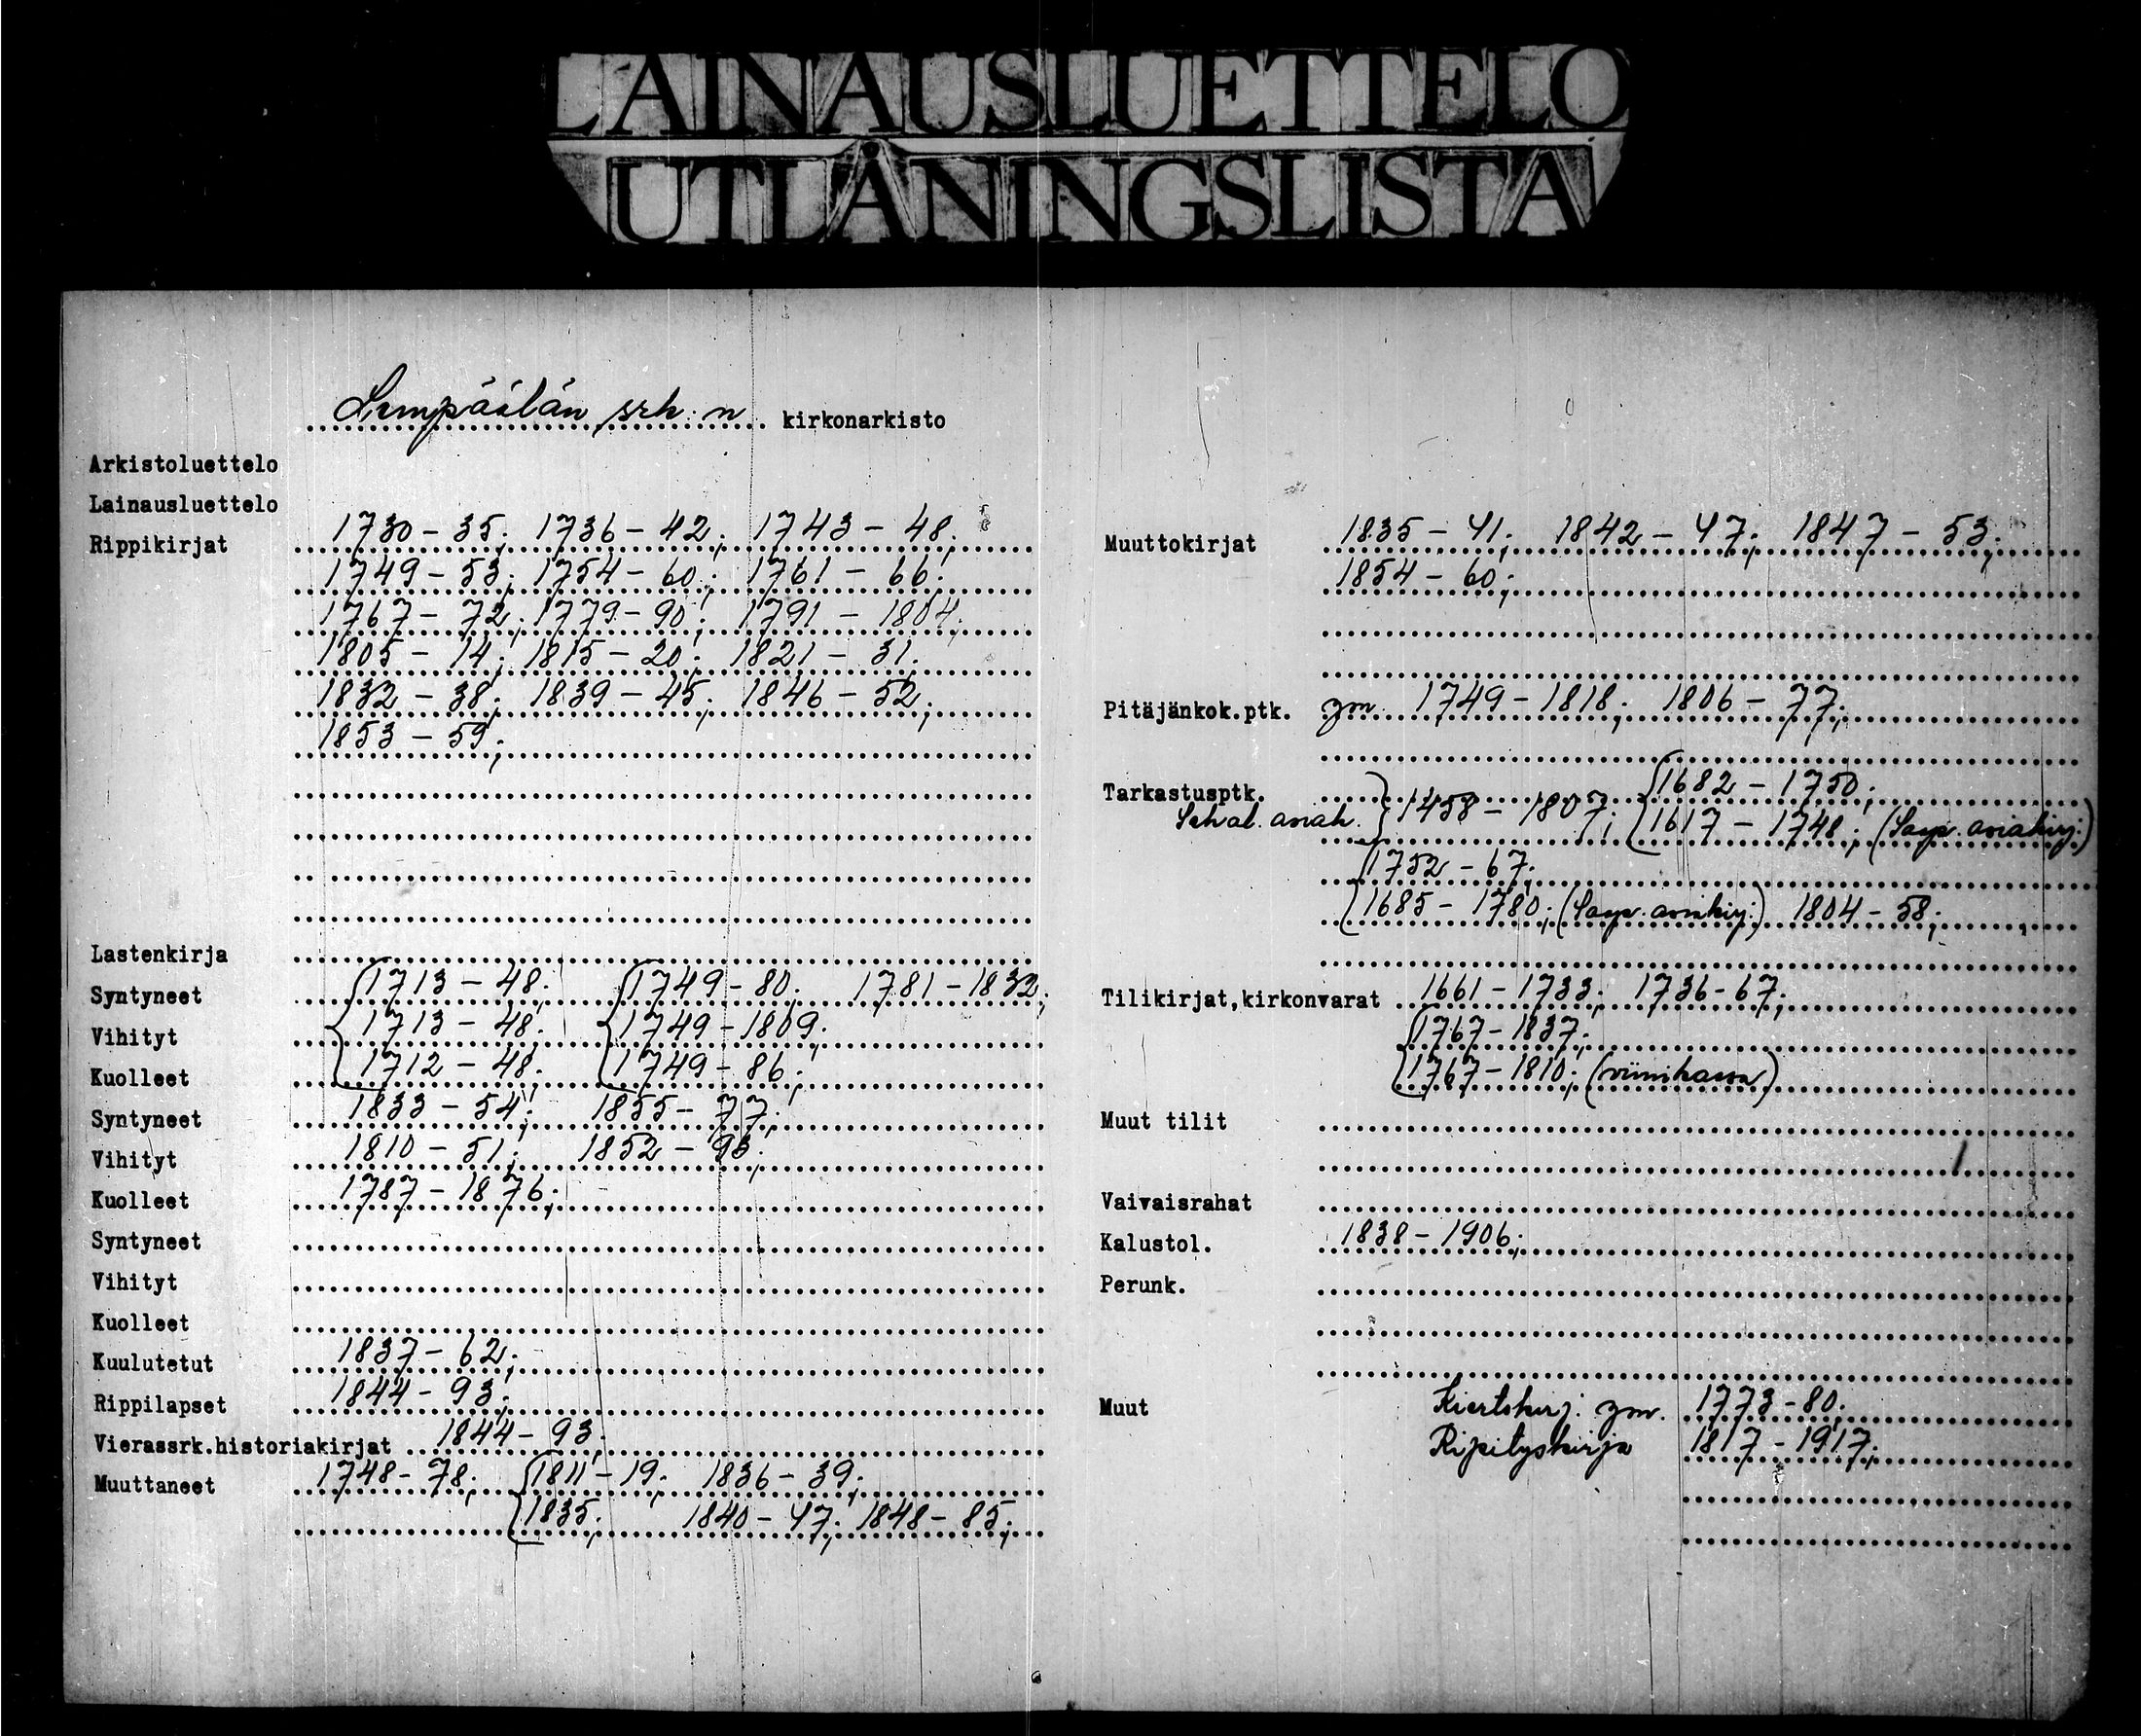 LAINAUSLUETTELO
UTLÅNINGSLISTA
Lempäälän srk:n kirkonarkisto
Arkistoluettelo
Lainausluettelo
Rippikirjat 1730 – 35; 1736 – 42; 1743 – 48;
1749 – 53; 1754 – 60; 1761 – 66;
1767 – 72; 1779 – 90; 1791 – 1804;
1805 – 14; 1815 – 20; 1821 – 31;
1832 – 38; 1839 – 45; 1846 – 52;
1853 – 59;
Lastenkirja
Syntyneet 1713 – 48; 1749 – 80; 1781 – 1832;
Vihityt 1713 – 48; 1749 – 1809;
Kuolleet 1712 – 48; 1749 – 86;
Syntyneet 1833 – 54; 1855 – 77;
Vihityt 1810 – 51; 1852 – 93;
Kuolleet 1787 – 1876;
Syntyneet
Vihityt
Kuolleet
Kuulutetut 1837 – 62;
Rippilapset 1844 – 93;
Vierassrk.historiakirjat 1844 – 93;
Muuttaneet 1748 – 78; 1811 – 19; 1836 – 39;
1835; 1840 – 47; 1848 – 85;
Muuttokirjat 1835 – 41; 1842 – 47; 1847 – 53;
1854 – 60;
Pitäjänkok.ptk. ym 1749 – 1818; 1806 – 77;
Tarkastusptk. 1682 – 1750;
Sekal. asiak. 1458 – 1807; 1617 – 1748; (Saap. asiakirj.)
1752 – 67;
1685 – 1780; (Saap. asiakirj.) 1804 – 58;
Tilikirjat,kirkonvarat 1661 – 1733; 1736 – 67;
1767 – 1837;
1767 – 1810; (viinikassa)
Muut tilit
Vaivaisrahat
Kalustol. 1838 – 1906;
Perunk.
Muut Kiertokirj. ym. 1773 – 80;
Ripityskirja 1817 – 1917;